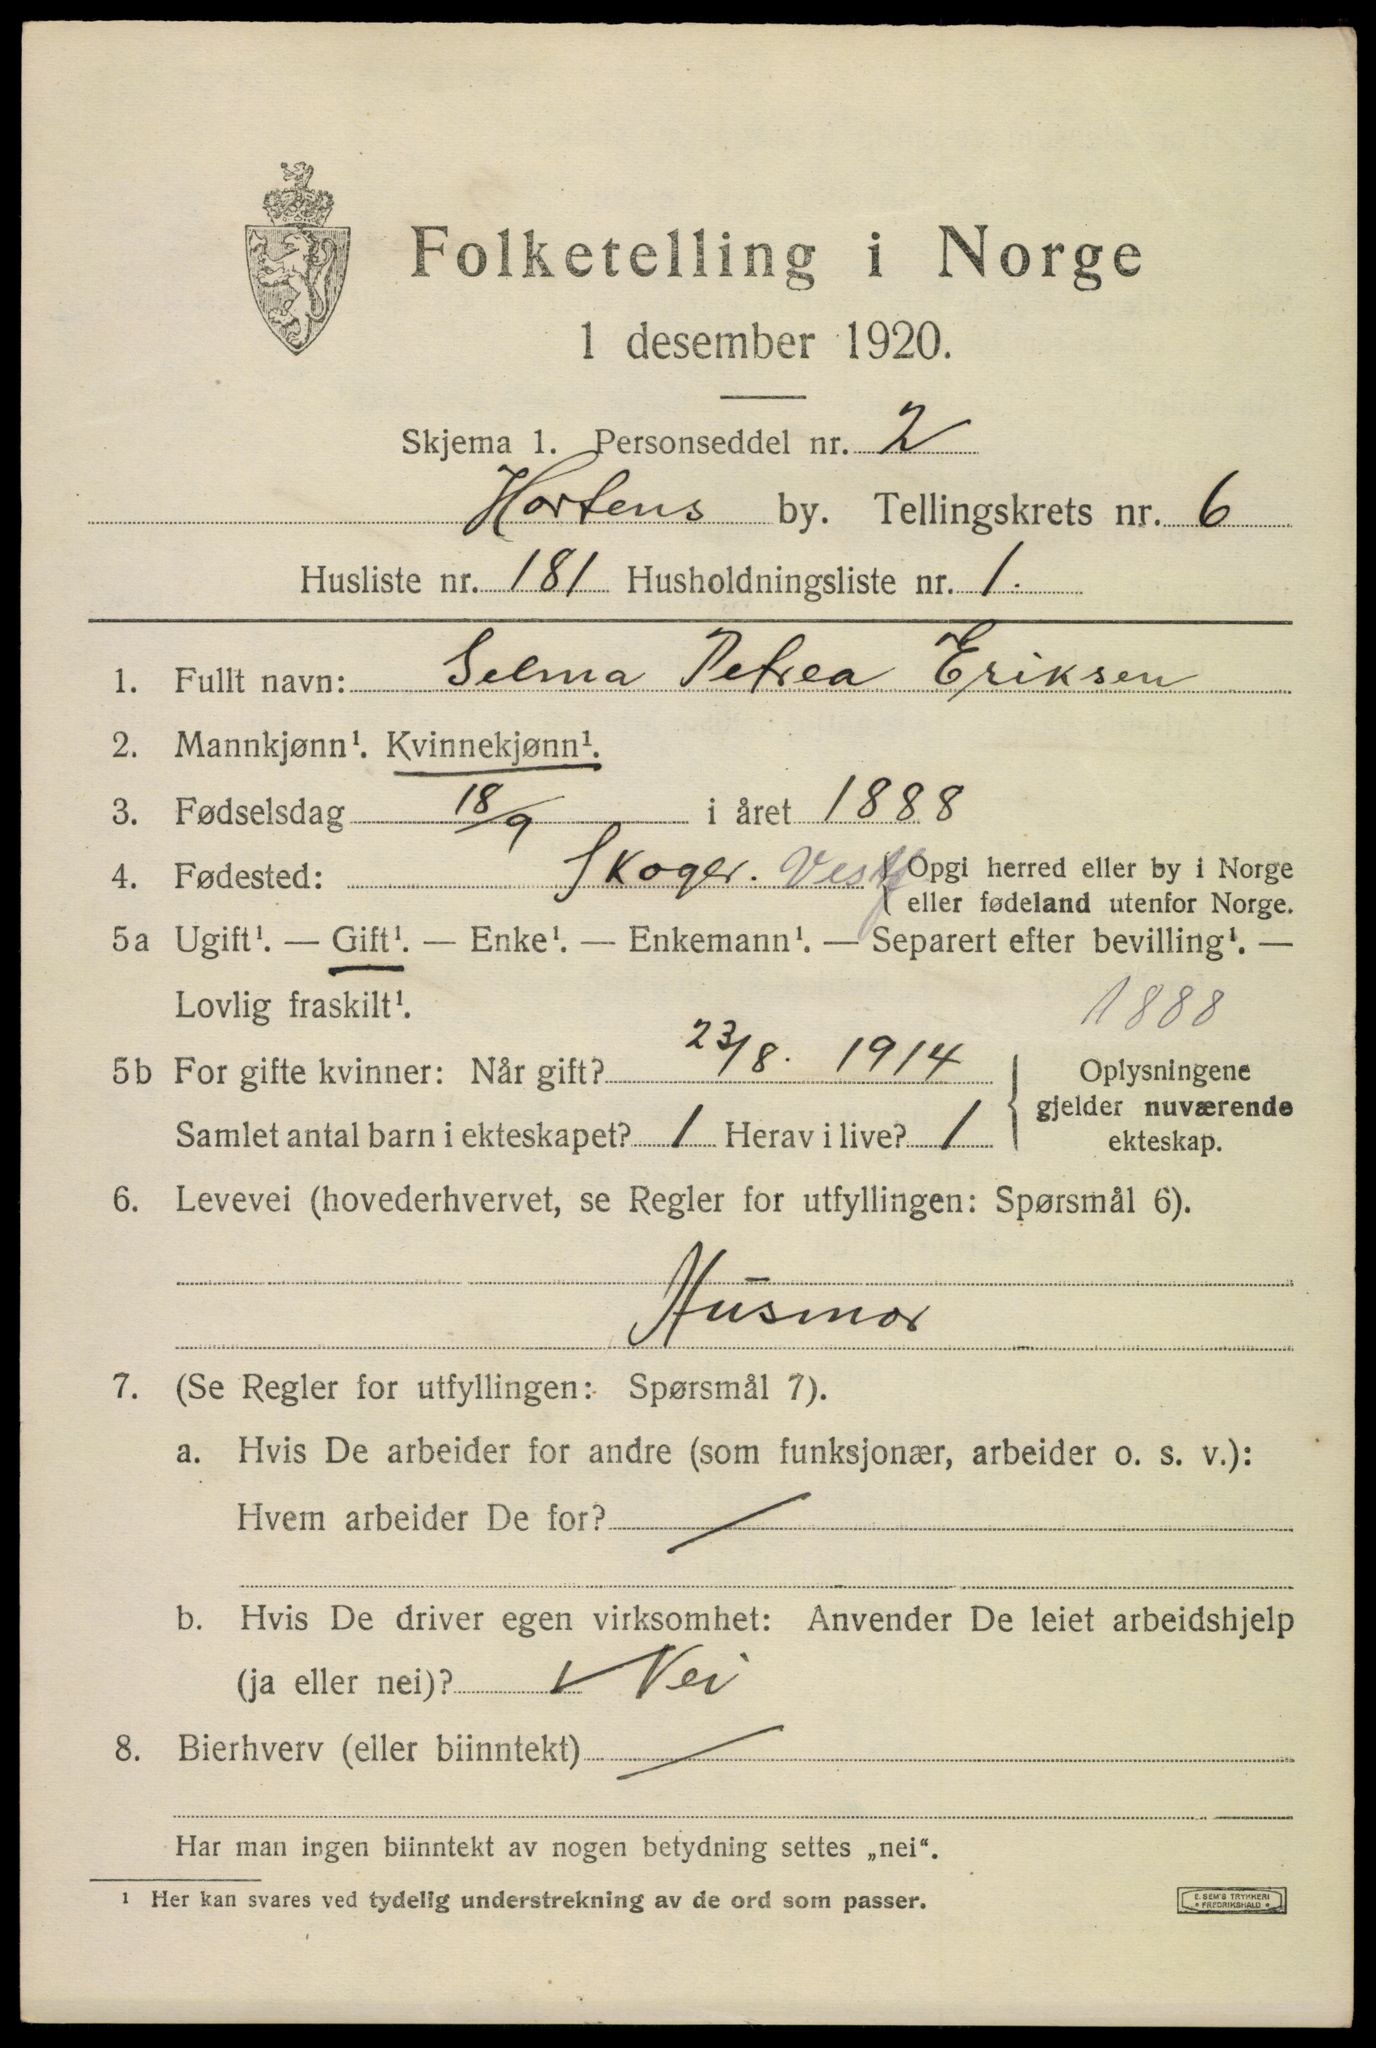 Folketelling i Norge
1 desember 1920.
Skjema 1. Personseddel nr. 2
Hortens by. Tellingskrets nr. 6
Husliste nr. 181 Husholdningsliste nr. 1.
1. Fullt navn: Selma Petrea Eriksen
2. Mannkjønn¹. Kvinnekjønn¹.
3. Fødselsdag 18/9 i året 1888
4. Fødested: Skoger. Vestf { Opgi herred eller by i Norge
eller fødeland utenfor Norge.
5a Ugift¹. — Gift¹. — Enke¹. — Enkemann¹. — Separert efter bevilling¹. —
Lovlig fraskilt¹.
1888
5b For gifte kvinner: Når gift? 23/8. 1914
Samlet antal barn i ekteskapet? 1 Herav i live? 1
Oplysningene
gjelder nuværende
ekteskap.
6. Levevei (hovederhvervet, se Regler for utfyllingen: Spørsmål 6).
Husmor
7. (Se Regler for utfyllingen: Spørsmål 7).
a. Hvis De arbeider for andre (som funksjonær, arbeider o. s. v.):
Hvem arbeider De for? /
b. Hvis De driver egen virksomhet: Anvender De leiet arbeidshjelp
(ja eller nei)? Nei
8. Bierhverv (eller biinntekt) /
Har man ingen biinntekt av nogen betydning settes „nei“.
¹ Her kan svares ved tydelig understrekning av de ord som passer.
E. SEM'S TRYKKERI
* FREDRIKSHALD *